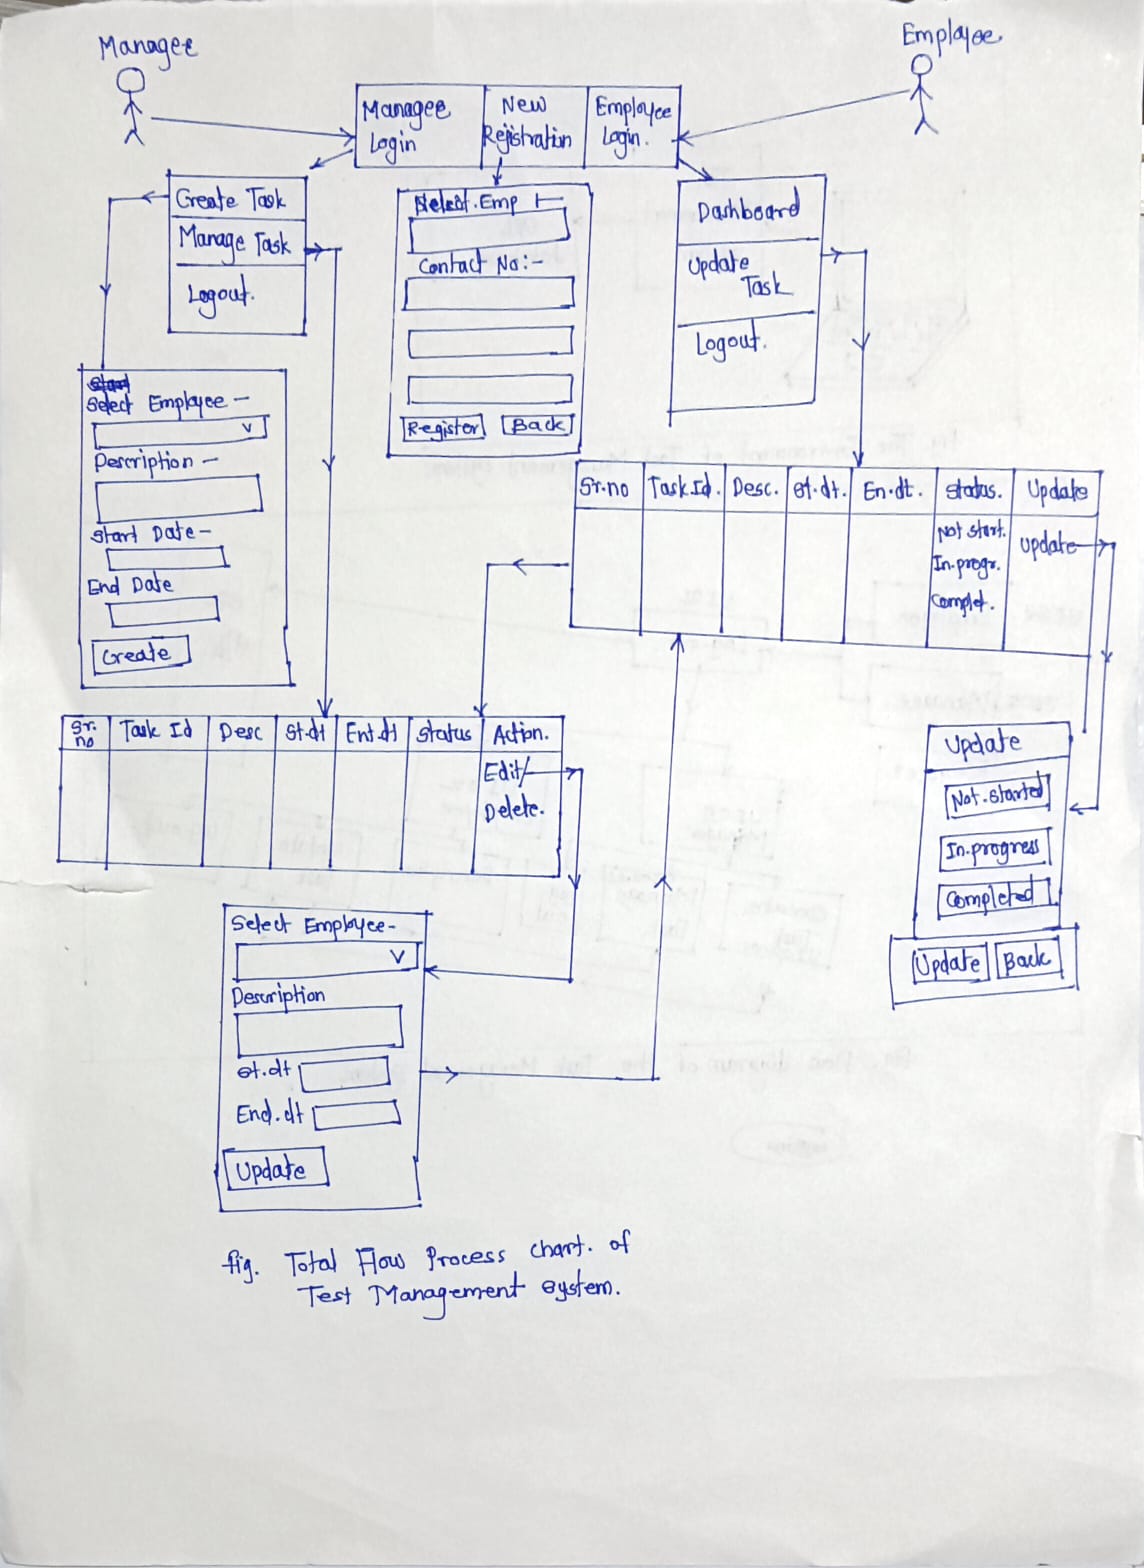 Manager
Employee
Manager Login
New Registration
Employee Login.
Create Task
Manage Task
Logout.
Select.Emp
Contact No:-
Register
Back
Dashboard
Update Task
Logout.
Select Employee -
Description -
Start Date -
End Date
Create
Sr.no Task.Id. Desc. st.dt. En.dt. status. Update
Not start.
In.progr.
Complet.
Update
Sr. no Task Id Desc st.dt Ent.dt status Action.
Edit/
Delete.
Update
Not.started
In.progress
Completed
Update
Back
Select Employee -
Description
st.dt
End.dt
Update
fig. Total Flow Process chart. of
Test Management system.